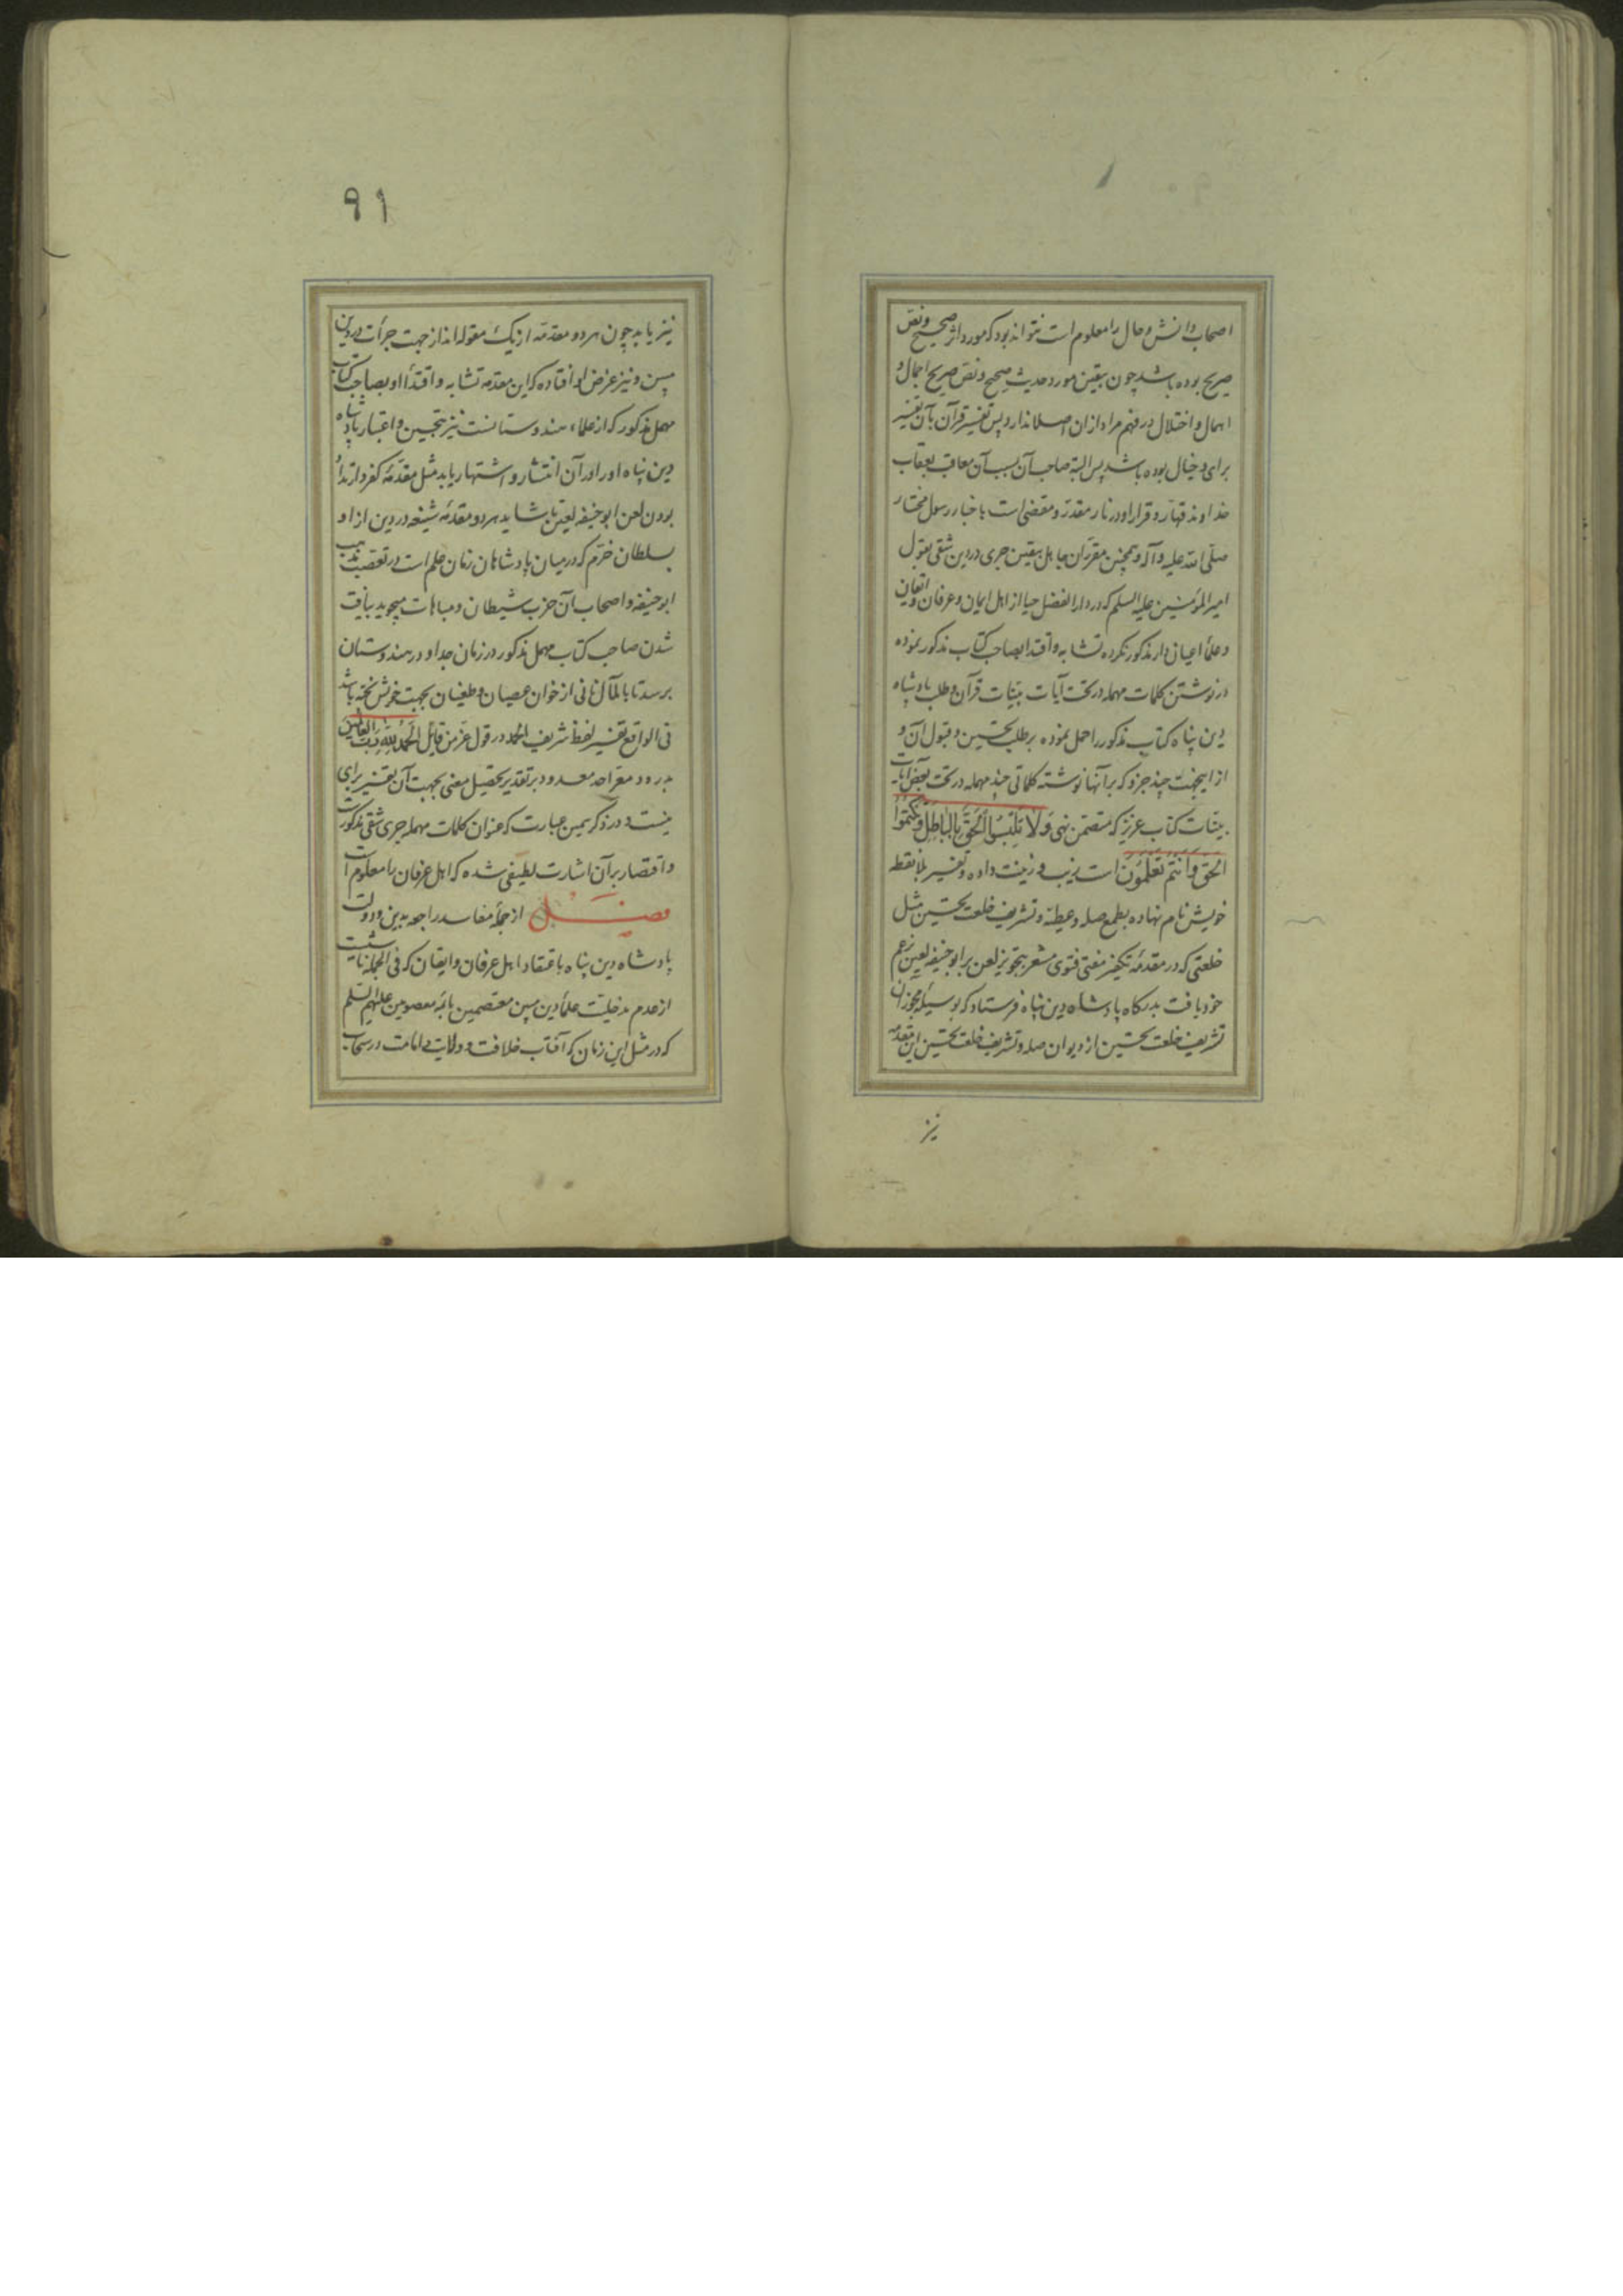 اصحاب دانش و حال را معلوم است نتواند بود که مورد اثر صحیح و نص
صریح بوده باشد چون بیقین مورد حدیث صحیح و نص صریح اجمال و
اهمال و اختلال در فهم مراد از ان اصلا ندارد پس تفسیر قرآن بآن تفسیر
برای و خیال بوده باشد پس البته صاحب آن بسبب آن معاقب بعقاب
خداوند قهار و قرار او در نار مقدر و مقضی است باخبار رسول مختار
صلی الله علیه و آله و همچنین مقرران جاهل بیقین جری در دین شقی بقول
امیر المؤمنین علیه السلم که در دار الفضل حیا از اهل ایمان و عرفان و ایقان
و علمأ اعیانی دار مذکور نکرده تشابه و اقتدا بصاحب کتاب مذکور نموده
در نوشتن کلمات مهمله در تحت آیات بینات قرآن و طلب پادشاه
دین پناه کتاب مذکور را حمل نموده بر طلب تحسین و قبول آن و
از اینجهت چند جزو که بر آنها نوشته کلماتی چند مهمله در تحت بعض آیات
بینات کتاب عزیز که متضمن نهی وَلَا تَلْبِسُوا الْحَقَّ بِالْبَاطِلِ وَتَكْتُمُوا
الْحَقَّ وَأَنْتُمْ تَعْلَمُونَ است زیب و زینت داده و تفسیر بلا نقطه
خویش نام نهاده بطمع صله و عطیه و تشریف خلعت تحسین مثل
خلعتی که در مقدمه تکفیر مفتی فتوی مشعر بتجویز لعن بر ابو حنیفه لعین بزعم
خود یافت بدرگاه پادشاه دین پناه فرستاد که بوسیله مجوزان
تشریف خلعت تحسین از دیوان صله و تشریف خلعت تحسین این مقدمه
نیز
٩١
نیز یابد چون هر دو مقدمه از یک مقوله اند از جهت جرأت در دین
مبین و نیز غرض او افتاده که این مقدمه تشابه و اقتدأ او بصاحب کتاب
مهمل مذکور که از علماء هندوستانست نیز بتحسین و اعتبار پادشاه
دین پناه او را و آن انتشار و اشتهار یابد مثل مقدمه کفر و ارتداد
بودن لعن ابو حنیفه لعین تا شاید هر دو مقدمه شنیعه در دین از او
بسلطان خرم که در میان پادشاهان زمان علم است در تعصب مذهب
ابو حنیفه و اصحاب آن حزب شیطان و مباهات میجوید بیافت
شدن صاحب کتاب مهمل مذکور در زمان جد او در هندوستان
برسد تا بالمآل نانی از خوان عصیان و طغیان بجهت خویش پخته باشد
فی الواقع تفسیر لفظ شریف الحمد در قول عز من قایل الْحَمْدُ لِلَّهِ رَبِّ الْعَالَمِینَ
بدرود معراحد معدود بر تقدیر تحصیل معنی بجهت آن تفسیر برای
نیست و در ذکر همین عبارت که عنوان کلمات مهمله جری شقی مذکورست
و اقتصار بر آن اشارت لطیفی شده که اهل عرفان را معلوم است
فصل از جمله مفاسد راجعه بدین و دولت
پادشاه دین پناه باعتقاد اهل عرفان و ایقان که فی الجمله ناشیست
از عدم مدخلیت علمأ دین مبین معتصمین بائمه معصومین علیهم السلم
که در مثل این زمان که آفتاب خلافت و ولایت و امامت در سحاب